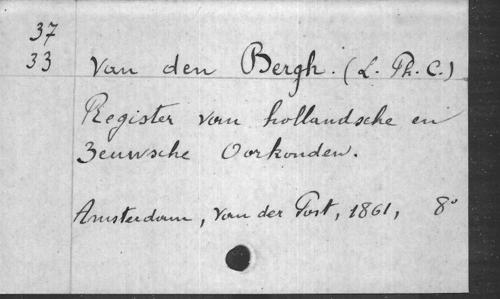 37
33
Van den Bergh. (L. Ph. C.)
Register van hollandsche en
Zeuwsche Oorkonden.
Amsterdam, van der Post, 1861, 8°